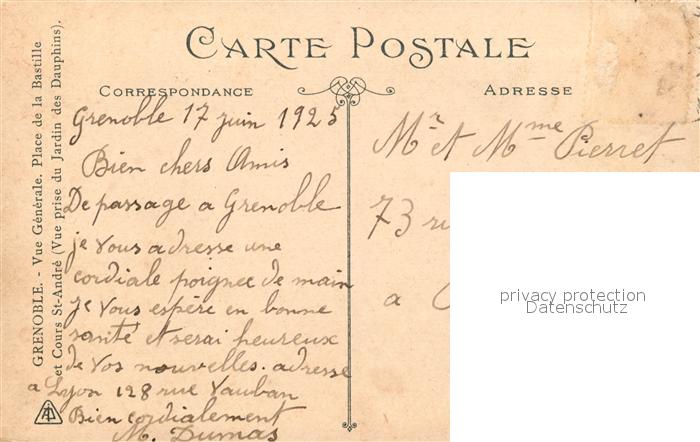 CARTE POSTALE
CORRESPONDANCE
ADRESSE
GRENOBLE. - Vue Générale. Place de la Bastille
et Cours St-André (Vue prise du Jardin des Dauphins).
Grenoble 17 juin 1925
Bien chers Amis
De passage a Grenoble
je vous adresse une
cordiale poignee de main
je vous espère en bonne
santé et serai heureux
de vos nouvelles. adresse
a Lyon 128 rue Vauban
Bien cordialement
M. Dumas
Mr et Mme Pierret
73 ru
a
privacy protection
Datenschutz